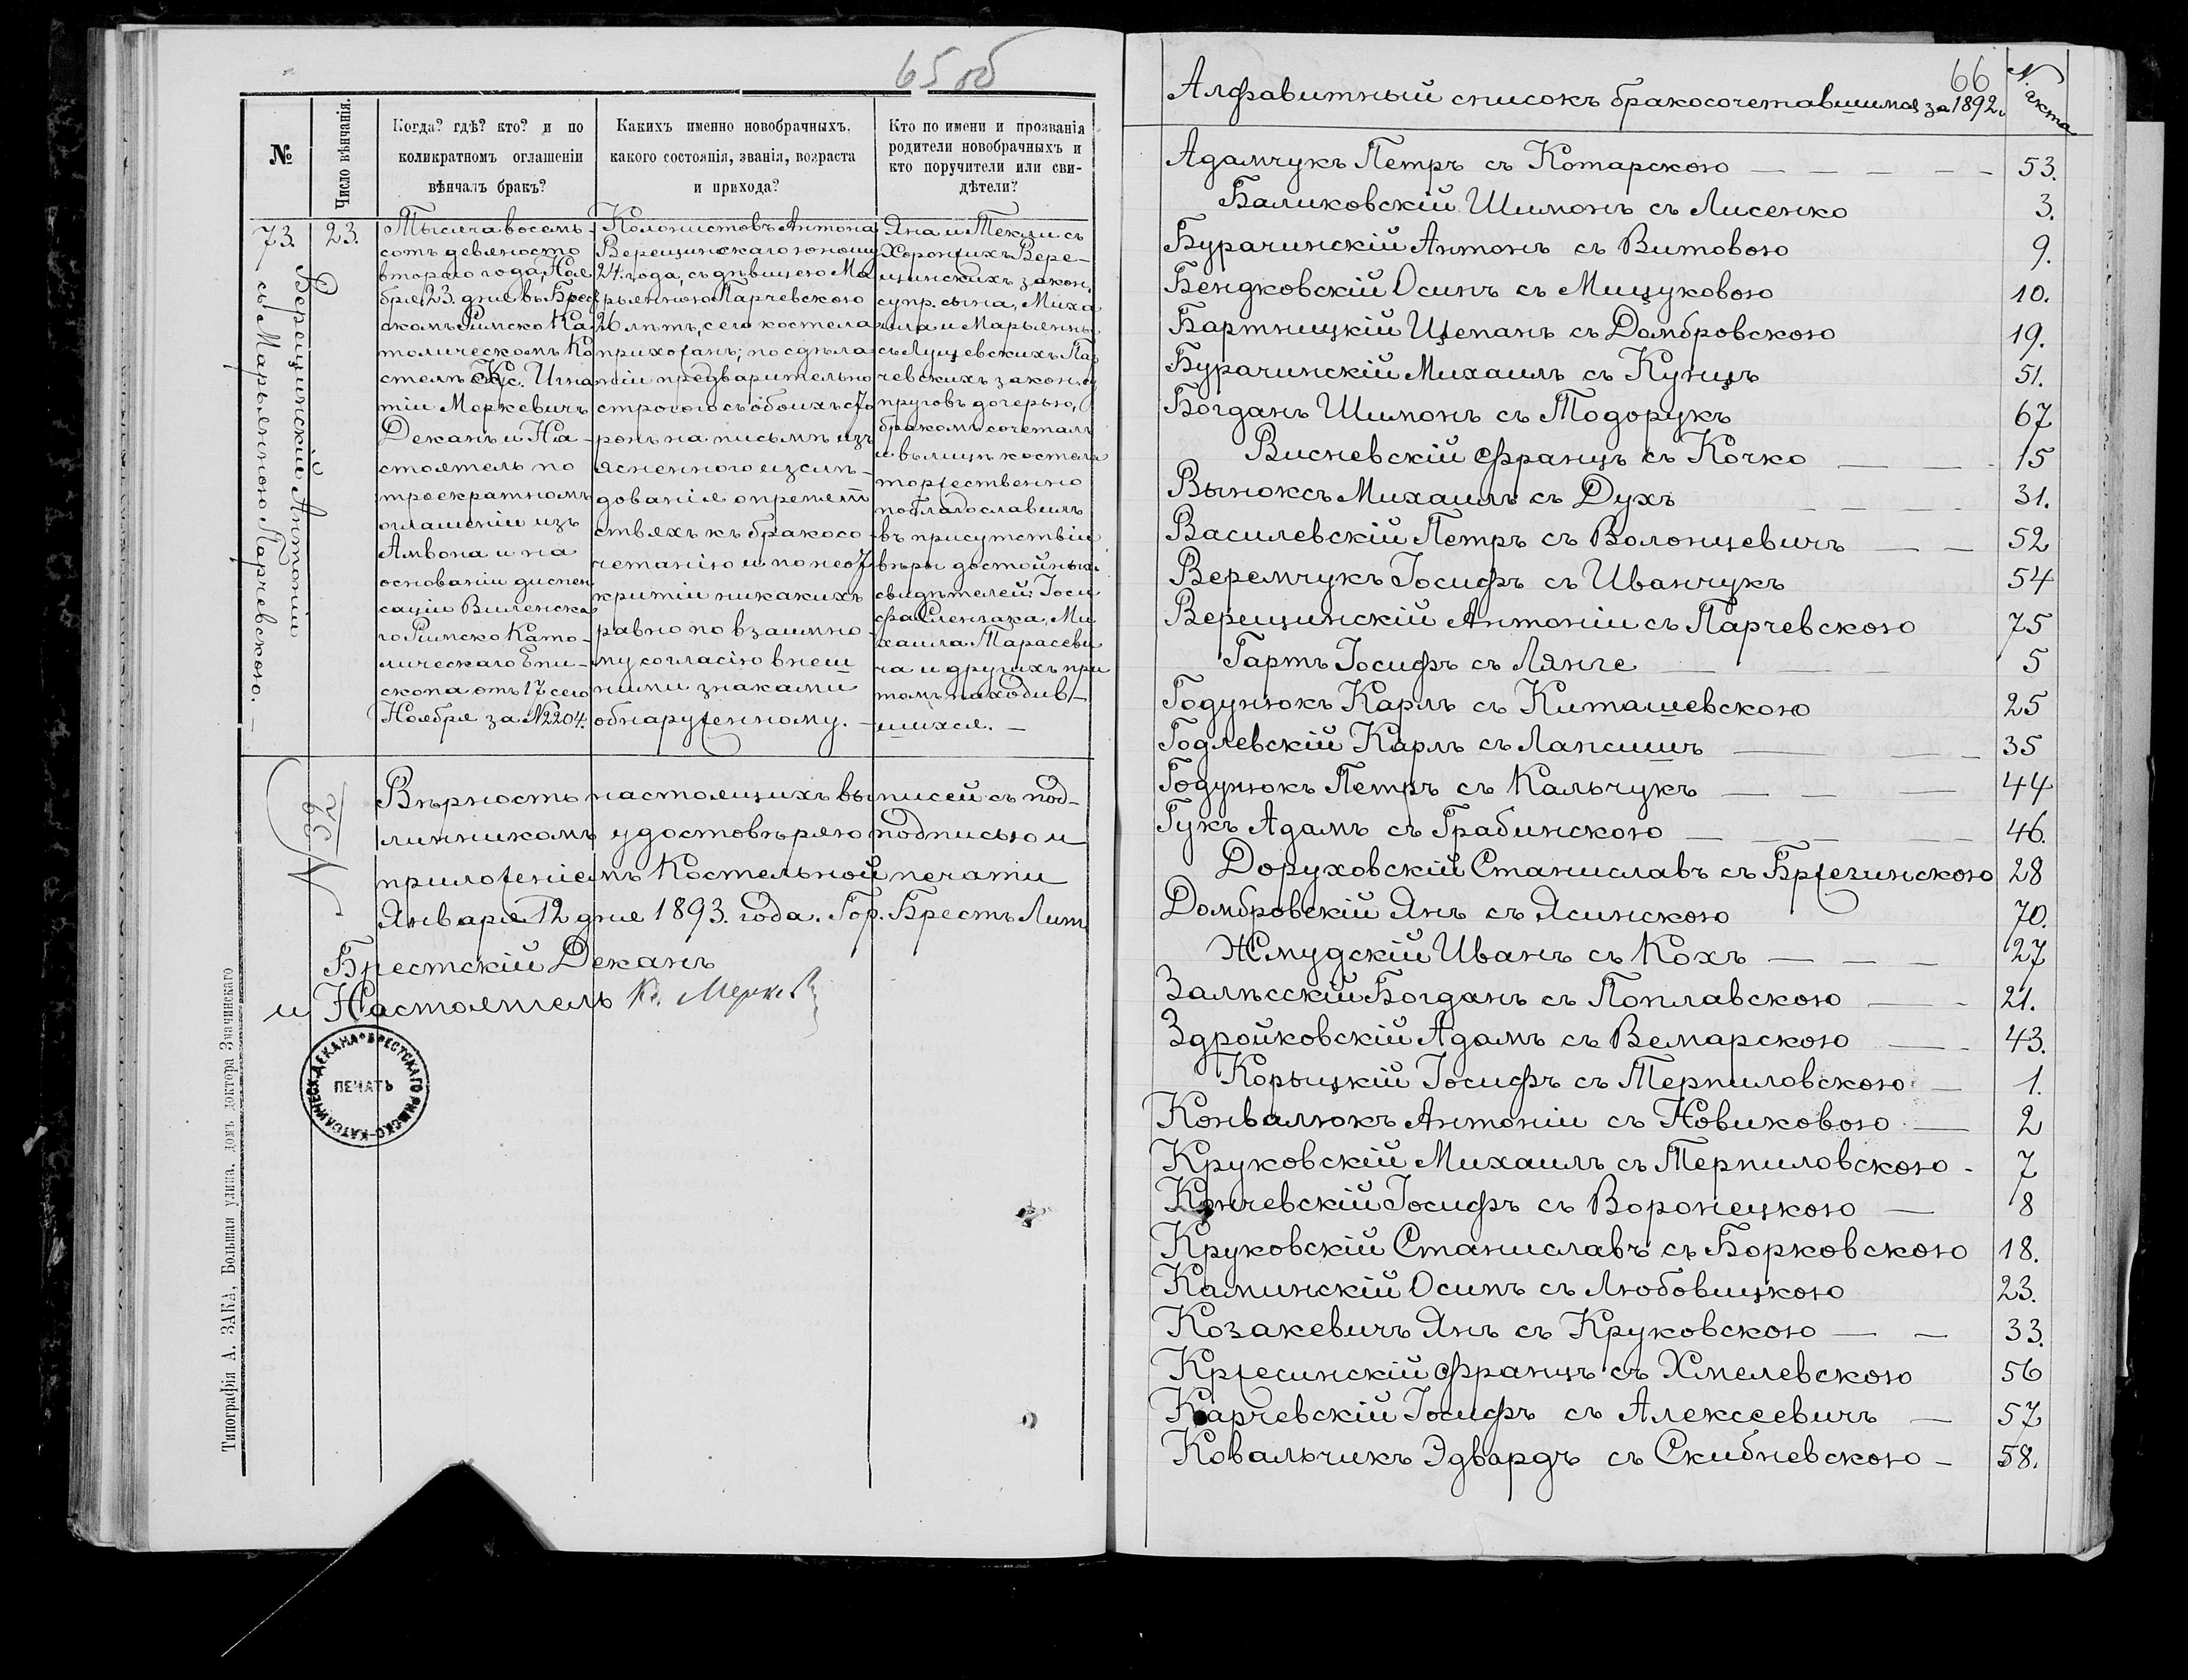 65 об
№
Число вѣнчанія.
Когда? гдѣ? кто? и по
коликратномъ оглашеніи
вѣнчалъ бракъ?
Какихъ именно новобрачныхъ,
какого состоянія, званія, возраста
и прихода?
Кто по имени и прозванія
родители новобрачныхъ и
кто поручители или сви-
дѣтели?
73.
23.
Верещинскій Антоній
съ Марьянною Парчевскою. —
Тысяча восемь-
сотъ девяносто
втораго года, Ноя
бря 23. дня въ Брест
скомъ Римско Ка
толическомъ Ко
стелѣ Кс. Игна
тій Меркевичъ
Деканъ и На-
стоятель по
троекратномъ
оглашеніи изъ
Амвона и на
основаніи диспен
саціи Виленска
го Римско Като-
лическаго Епи-
скопа отъ 17 сего
Ноября за № 2204.
Колонистовъ Антона
Верещинскаго юношу
24. года, съ дѣвицею Ма
рьянною Парчевскою
26 лѣтъ, сего костела
прихожанъ; по сдѣла
ніи предварительно
строгого съ обоихъ сто
ронъ на письмѣ изъ
ясненного изслѣ-
дованія о препят
ствяхъ къ бракосо
четанію и по неот
критіи никакихъ
равно по взаимно-
му согласію внеш
ними знаками
обнаруженному. —
Яна и Текли съ
Хоронжихъ Вере-
щинскихъ закон.
супр. сына, Миха
ила и Марьянны
съ Лущевскихъ Пар
чевскихъ закон. су
пруговъ дочерью,
бракомъ сочеталъ
и въ лицѣ костела
торжественно
поблагославилъ
въ присутствіи
вѣры достойныхъ
свидѣтелей: Іоси
фа Слензака, Ми
хаила Тарасеви
ча и другихъ при
томъ находив-
шихся. —
№ 32
Вѣрность настоящихъ выписей съ под-
линникомъ удостовѣряю подписью и
приложеніемъ Костельной печати
Января 12 дня 1893. года. Гор. Брестъ Лит.
Брестскій Деканъ
и Настоятель Кс. Меркев
ПЕЧАТЬ
ДЕКАНА БРЕСТСКАГО РИМСКО-КАТОЛИЧЕСК.
Типографія А. ЗАКА, Большая улица, домъ доктора Значинскаго
66
Алфавитный списокъ бракосочетавшимся за 1892 г.
N. акта
Адамчукъ Петръ съ Котарскою — 53.
Баликовскій Шимонъ съ Лисенко 3.
Бурачинскій Антонъ съ Витовою 9.
Бендковскій Осипъ съ Мищуковою 10.
Бартницкій Щепанъ съ Домбровскою 19.
Бурачинскій Михаилъ съ Кунцъ 51.
Богданъ Шимонъ съ Тодорукъ 67
Висневскій Францъ съ Кочко — 15
Вынюксъ Михаилъ съ Духъ 31.
Василевскій Петръ съ Волонцевичъ — 52
Веремчукъ Іосифъ съ Иванчукъ 54
Верещинскій Антоній съ Парчевскою 75
Гартъ Іосифъ съ Лянге — 5
Годунюкъ Карлъ съ Киташевскою 25
Годлевскій Карлъ съ Лапсишъ — 35
Годунюкъ Петръ съ Кальчукъ — 44
Гукъ Адамъ съ Грабинскою — 46.
Доруховскій Станиславъ съ Бржезинскою 28
Домбровскій Янъ съ Ясинскою 70.
Жмудскій Иванъ съ Кохъ — 27
Залѣсскій Богданъ съ Поплавскою — 21.
Здройковскій Адамъ съ Вемарскою — 43.
Корыцкій Іосифъ съ Терпиловскою — 1.
Конвалюкъ Антоній съ Новиковою — 2
Круковскій Михаилъ съ Терпиловскою - 7
Кончевскій Іосифъ съ Воронецкою — 8
Круковскій Станиславъ съ Борковскою 18.
Каминскій Осипъ съ Любовицкою 23.
Козакевичъ Янъ съ Круковскою — 33.
Кржесинскій Францъ съ Хмелевскою 56
Карчевскій Іосифъ съ Алексеевичъ — 57
Ковальчикъ Эдвардъ съ Скибневскою - 58.